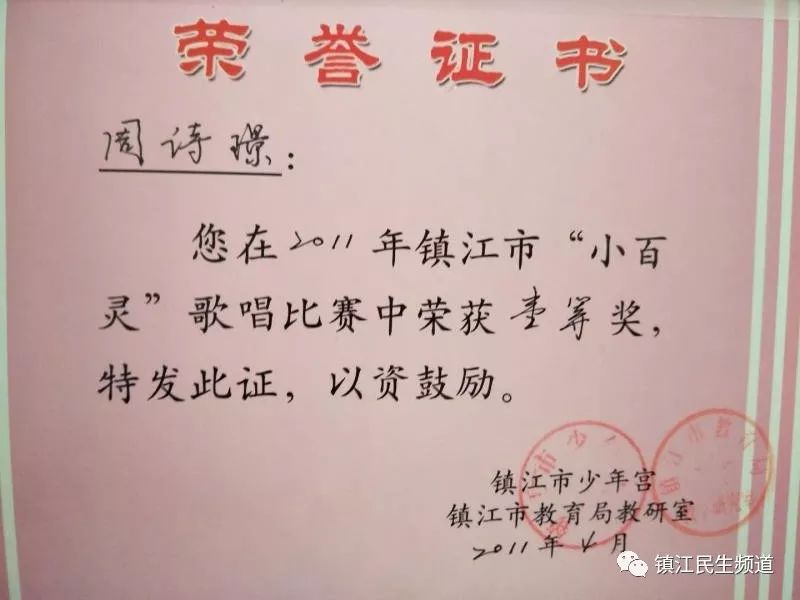 荣誉证书
周诗璟：
您在2011年镇江市“小百
灵”歌唱比赛中荣获壹等奖，
特发此证，以资鼓励。
镇江市少年宫
镇江市教育局教研室
2011年 月
镇江民生频道